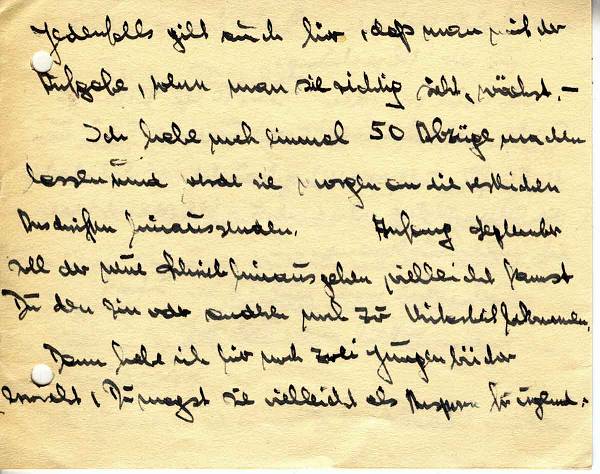 Jedenfalls gilt auch hier, daß man mit der
Aufgabe, wenn man sie richtig sieht, wächst. –
Ich habe noch einmal 50 Abzüge machen
lassen und werde sie morgen an die restlichen
Anschriften hinaussenden. Anfang September
soll der neue hinausgehen vielleicht kannst
Du den ein oder anderen noch zur bekommen.
Dann habe ich hier noch zwei Jungenbilder
, Du magst sie vielleicht als für irgend-